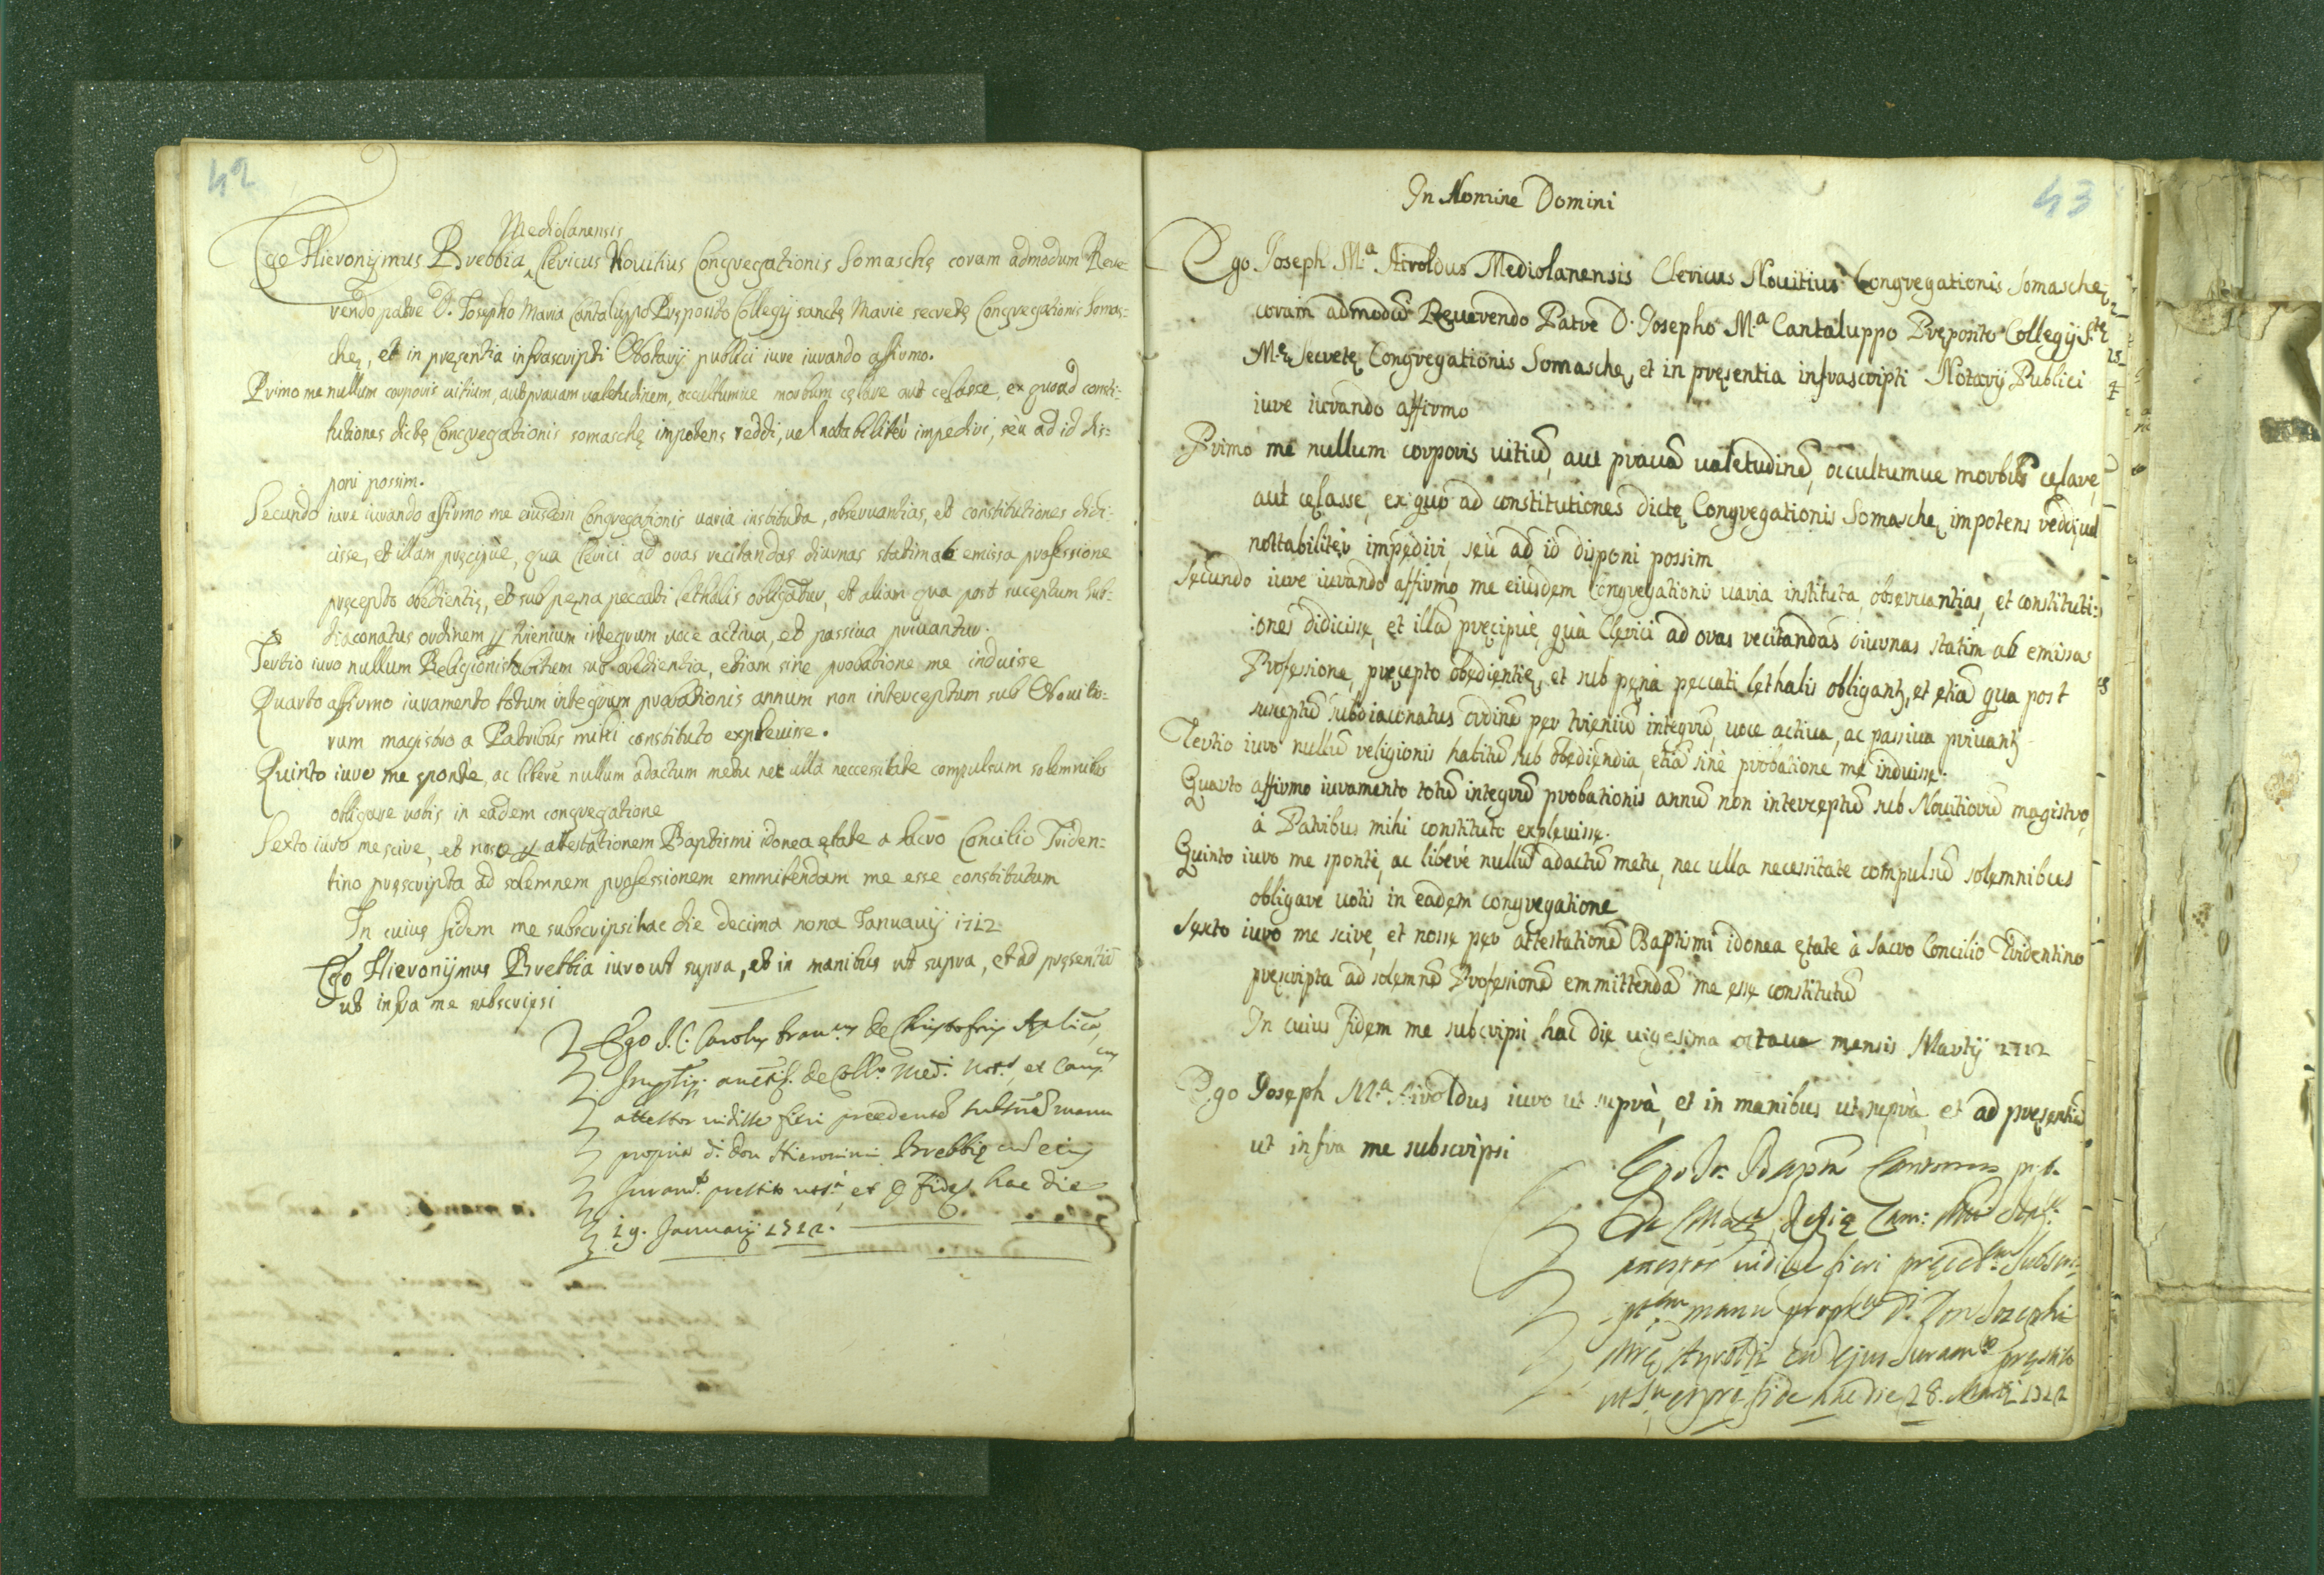 42
Mediolanensis
Ego Hieronijmus Brebbia Clericus Nouitius Congregationis Somaschę coram admodum Reue
rendo patre D. Josepho Maria Cantaluppo Pręposito Collegij sanctę Marie secretę Congregationis Somas:
chę, et in pręsentia infrascripti Notarij publici iure iurando affirmo.
Primo me nullum corporis uitium, aut prauam ualetudinem, occultumue morbum cęlare aut cęlasse, ex quo ad consti:
tutiones dictę Congregationis somaschę impotens reddi, uel notabiliter impediri, seu ad id dis:
poni possim.
Secundo iure iurando affirmo me eiusdem Congregationis uaria instituta, obseruantias, et constitutiones didi:
cisse, et illam pręcipue, qua Clerici ad oras recitandas diurnas statim ab emissa professione
pręcepto obedientię, et sub pęna peccati lethalis obligantur, et aliam qua post suceptum sub:
diaconatus ordinem p trienium integrum uoce actiua, et passiua priuantur.
Tertio iuro nullum Religionis habitum sub obedientia, etiam sine probatione me induisse
Quarto affirmo iuramento totum integrum probationis annum non interceptum sub Nouitio:
rum magistro a Patribus mihi constituto expleuisse.
Quinto iuro me sponte, ac libere nullum adactum metu nec ulla neccesitate compulsum solemnibus
obligare uotis in eadem congregatione
Sexto iuro me scire, et nosse p attestationem Baptismi idonea ętate a sacro Concilio Triden:
tino pręscripta ad solemnem professionem emmitendam me esse constitutum
In cuius fidem me subscripsi hac die decima nona Januarij 1712
Ego Hieronijmus Brebbia iuro ut supra, et in manibus ut supra, et ad pręsentiã
ut infra me subscripsi
Ego J. C. Carolus Fran.cus de Christoforis Aplica,
auctis. de Coll.o Med.i Not.s, et
attestor uidisse fieri precedentẽ manu
propria d. Don Hieronimi Brebbię cũ eius
Juram.to prestito ut s.a et p Fide hac die
19. Januarij 1712.
43
In Nomine Domini
Ego Joseph M.a Airoldus Mediolanensis Clericus Nouitius Congregationis Somaschę
coram admodũ Reuerendo Patre D. Josepho M.a Cantaluppo Pręposito Collegij S.tę
M.ę Secretę Congregationis Somaschę, et in pręsentia infrascripti Notarij Publici
iure iurando affirmo
Primo me nullum corporis uitiũ, aut prauã ualetudinẽ, occultumue morbũ cęlare,
aut cęlasse, ex quo ad constitutiones dictę Congregationis Somaschę impotens reddi, uel
nottabiliter impediri, seù ad id disponi possim
Secundo iure iurando affirmo me eiusdem Congregationis uaria instituta, obseruantias, et constituti:
iones didicisse, et illã pręcipuè, quà Clerici ad oras recitandas diurnas statim ab emissa
Professione, pręcepto obedientię, et sub pęna peccati lethalis obligant, et etiã qua post
susceptũ subdiaconatus ordinẽ per trieniũ integrũ, uoce actiua, ac passiua priuant
Tertio iuro nullũ religionis habitũ sub obediendia, etiã sine probatione me induisse.
Quarto affirmo iuramento totũ integrũ probationis annũ non interceptũ sub Nouitiorũ magistro,
à Patribus mihi constituto expleuisse.
Quinto iuro me spontè, ac liberè nullũ adactũ metu, nec ulla necessitate compulsũ solemnibus
obligare uotis in eadem congregatione
Sexto iuro me scire, et nosse per attestationẽ Baptismi idonea ętate à Sacro Concilio Tridentino
pręscripta ad solemnẽ Professionẽ emmittendã me esse constitutũ
In cuius fidem me subcripsi hac die uigesima octaua mensis Martij 1712
Ego Joseph M.a Airoldus iuro ut suprà, et in manibus ut suprà, et ad pręsentiã
ut infra me subscripsi
Ego Jo. Bapta
attestor uidisse fieri pręced.tem Subscri:
pt.em manu propria D. Don Josephi
Mrę Ayroldi cũ ejus Juram.to pręstito
ut s.a et pro fide hac die 28. Martij 1712